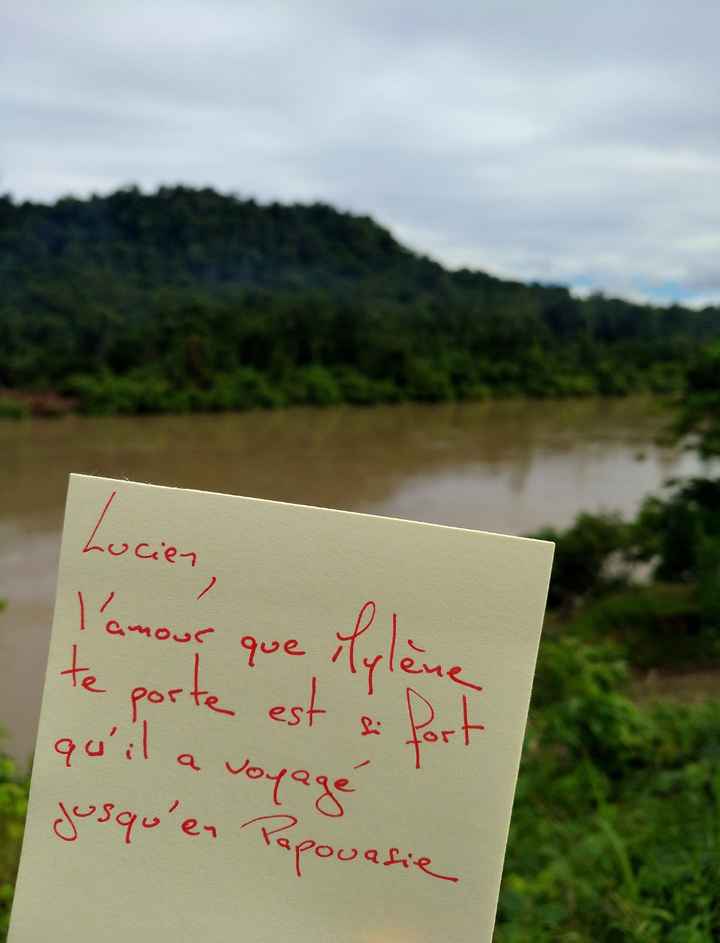 Lucien,
l'amour que Mylène
te porte est si fort
qu'il a voyagé
jusqu'en Papouasie